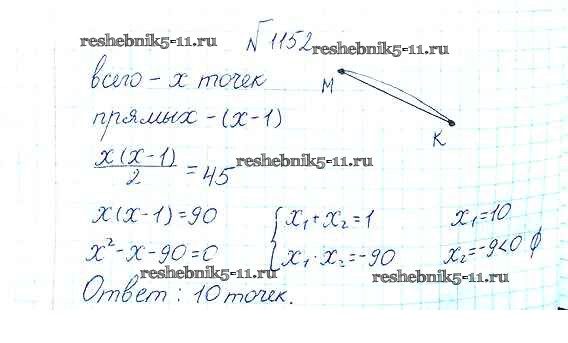 reshebnik5-11.ru
№1152
reshebnik5-11.ru
всего - x точек
M
прямых - (x-1)
K
x(x-1)/2 = 45
reshebnik5-11.ru
x(x-1)=90
x²-x-90=0
{x₁+x₂=1
x₁·x₂=-90
x₁=10
x₂=-9<0 ∅
reshebnik5-11.ru
reshebnik5-11.ru
Ответ: 10 точек.